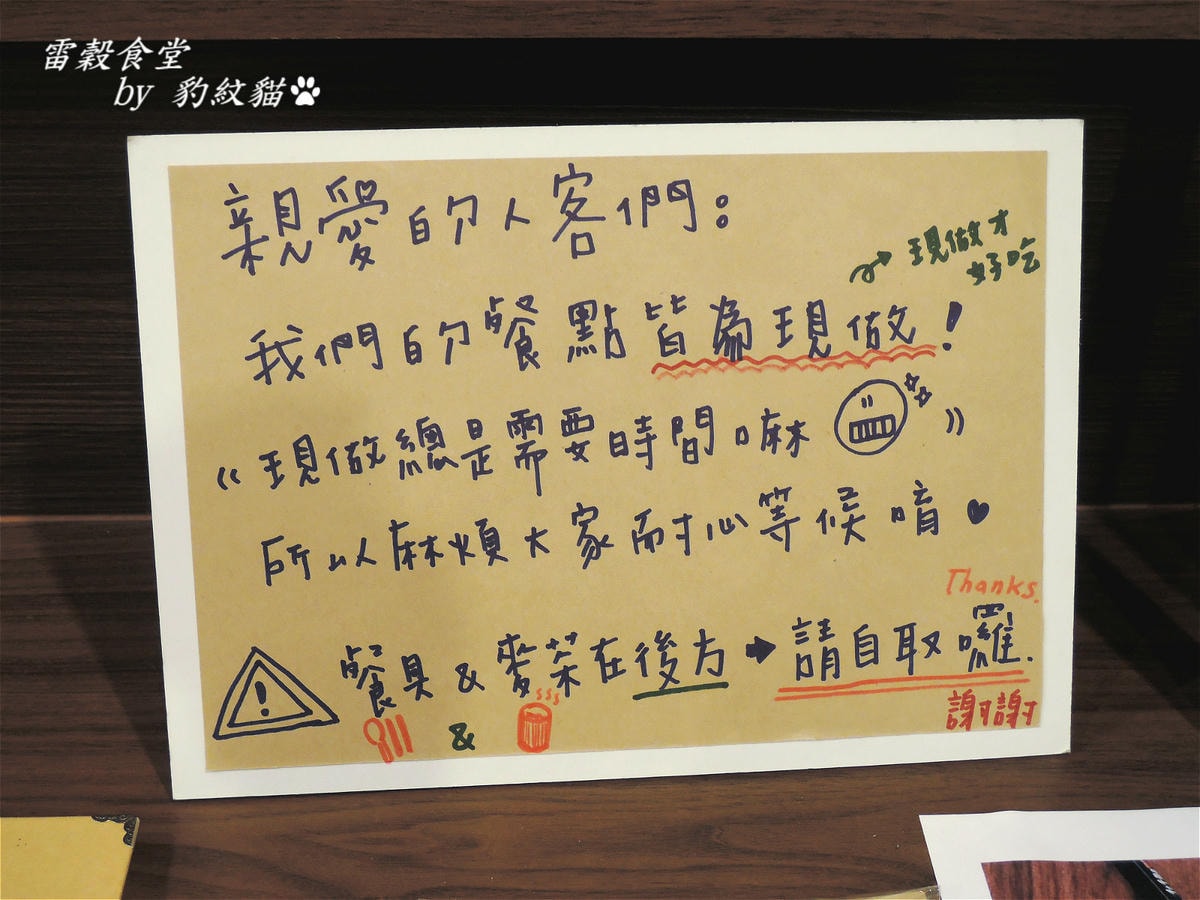 雷穀食堂
by 豹紋貓
親愛的人客們：
現做才
好吃
我們的餐點皆為現做！
《現做總是需要時間嘛》
所以麻煩大家耐心等候唷
Thanks.
餐具 & 麥茶在後方 → 請自取囉.
&
謝謝